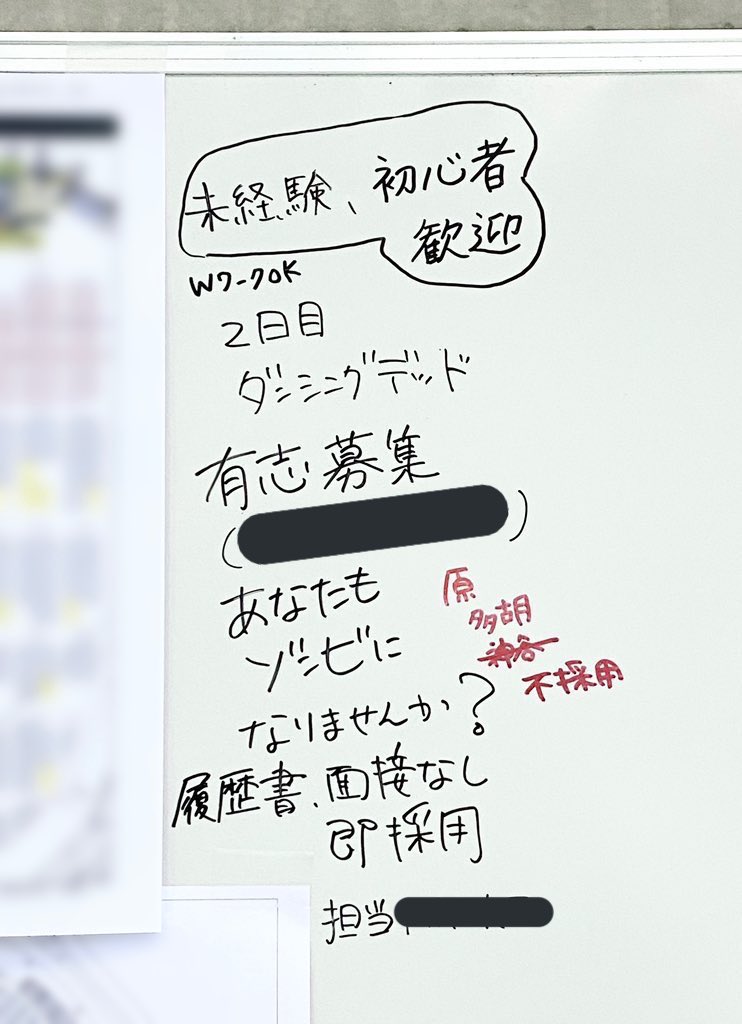 未経験、初心者
歓迎
WワークOK
2日目
ダンシングデッド
有志募集
( )
あなたも
ゾンビに
なりませんか?
原
多胡
神谷
不採用
履歴書、面接なし
即採用
担当